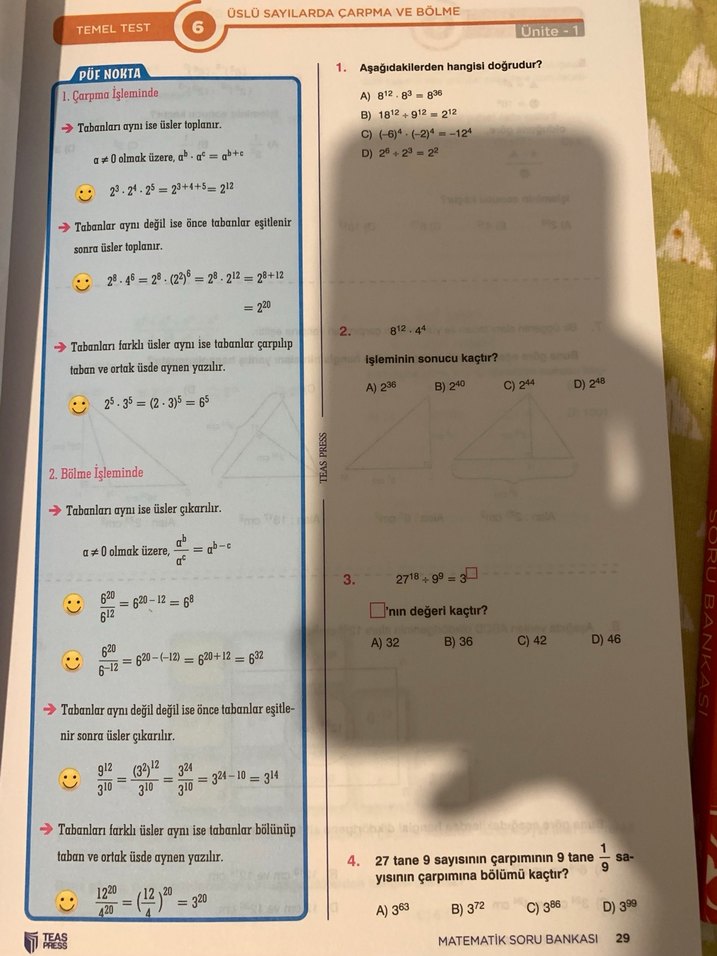 TEMEL TEST
6
ÜSLÜ SAYILARDA ÇARPMA VE BÖLME
Ünite - 1
PÜF NOKTA
1. Çarpma İşleminde
→ Tabanları aynı ise üsler toplanır.
a ≠ 0 olmak üzere, aᵇ · aᶜ = aᵇ⁺ᶜ
2³ · 2⁴ · 2⁵ = 2³⁺⁴⁺⁵ = 2¹²
→ Tabanlar aynı değil ise önce tabanlar eşitlenir
sonra üsler toplanır.
2⁸ · 4⁶ = 2⁸ · (2²)⁶ = 2⁸ · 2¹² = 2⁸⁺¹²
= 2²⁰
→ Tabanları farklı üsler aynı ise tabanlar çarpılıp
taban ve ortak üsde aynen yazılır.
2⁵ · 3⁵ = (2 · 3)⁵ = 6⁵
2. Bölme İşleminde
→ Tabanları aynı ise üsler çıkarılır.
a ≠ 0 olmak üzere, aᵇ/aᶜ = aᵇ⁻ᶜ
6²⁰/6¹² = 6²⁰⁻¹² = 6⁸
6²⁰/6⁻¹² = 6²⁰⁻⁽⁻¹²⁾ = 6²⁰⁺¹² = 6³²
→ Tabanlar aynı değil değil ise önce tabanlar eşitle-
nir sonra üsler çıkarılır.
9¹²/3¹⁰ = (3²)¹²/3¹⁰ = 3²⁴/3¹⁰ = 3²⁴⁻¹⁰ = 3¹⁴
→ Tabanları farklı üsler aynı ise tabanlar bölünüp
taban ve ortak üsde aynen yazılır.
12²⁰/4²⁰ = (12/4)²⁰ = 3²⁰
TEAS PRESS
1. Aşağıdakilerden hangisi doğrudur?
A) 8¹² · 8³ = 8³⁶
B) 18¹² ÷ 9¹² = 2¹²
C) (–6)⁴ · (–2)⁴ = –12⁴
D) 2⁶ ÷ 2³ = 2²
2. 8¹² · 4⁴
işleminin sonucu kaçtır?
A) 2³⁶ B) 2⁴⁰ C) 2⁴⁴ D) 2⁴⁸
3. 27¹⁸ ÷ 9⁹ = 3^□
□'nın değeri kaçtır?
A) 32 B) 36 C) 42 D) 46
4. 27 tane 9 sayısının çarpımının 9 tane 1/9 sa-
yısının çarpımına bölümü kaçtır?
A) 3⁶³ B) 3⁷² C) 3⁸⁶ D) 3⁹⁹
TEAS
PRESS
MATEMATİK SORU BANKASI 29
SORU BANKASI